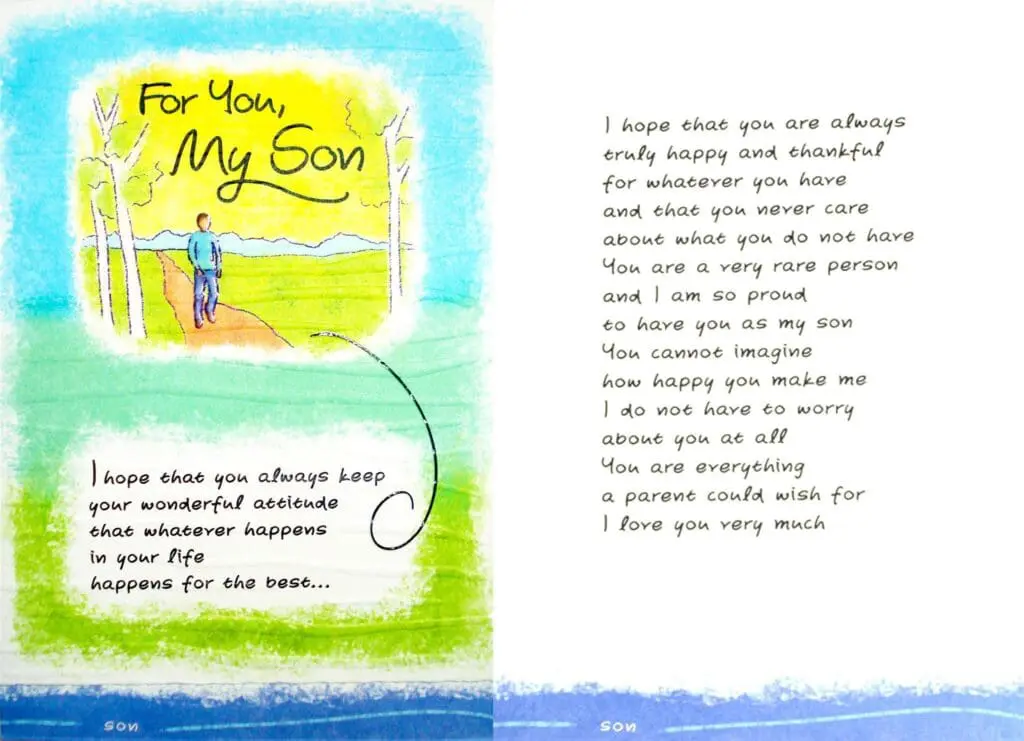 For You,
My Son
I hope that you always keep
your wonderful attitude
that whatever happens
in your life
happens for the best...
son
I hope that you are always
truly happy and thankful
for whatever you have
and that you never care
about what you do not have
You are a very rare person
and I am so proud
to have you as my son
You cannot imagine
how happy you make me
I do not have to worry
about you at all
You are everything
a parent could wish for
I love you very much
son